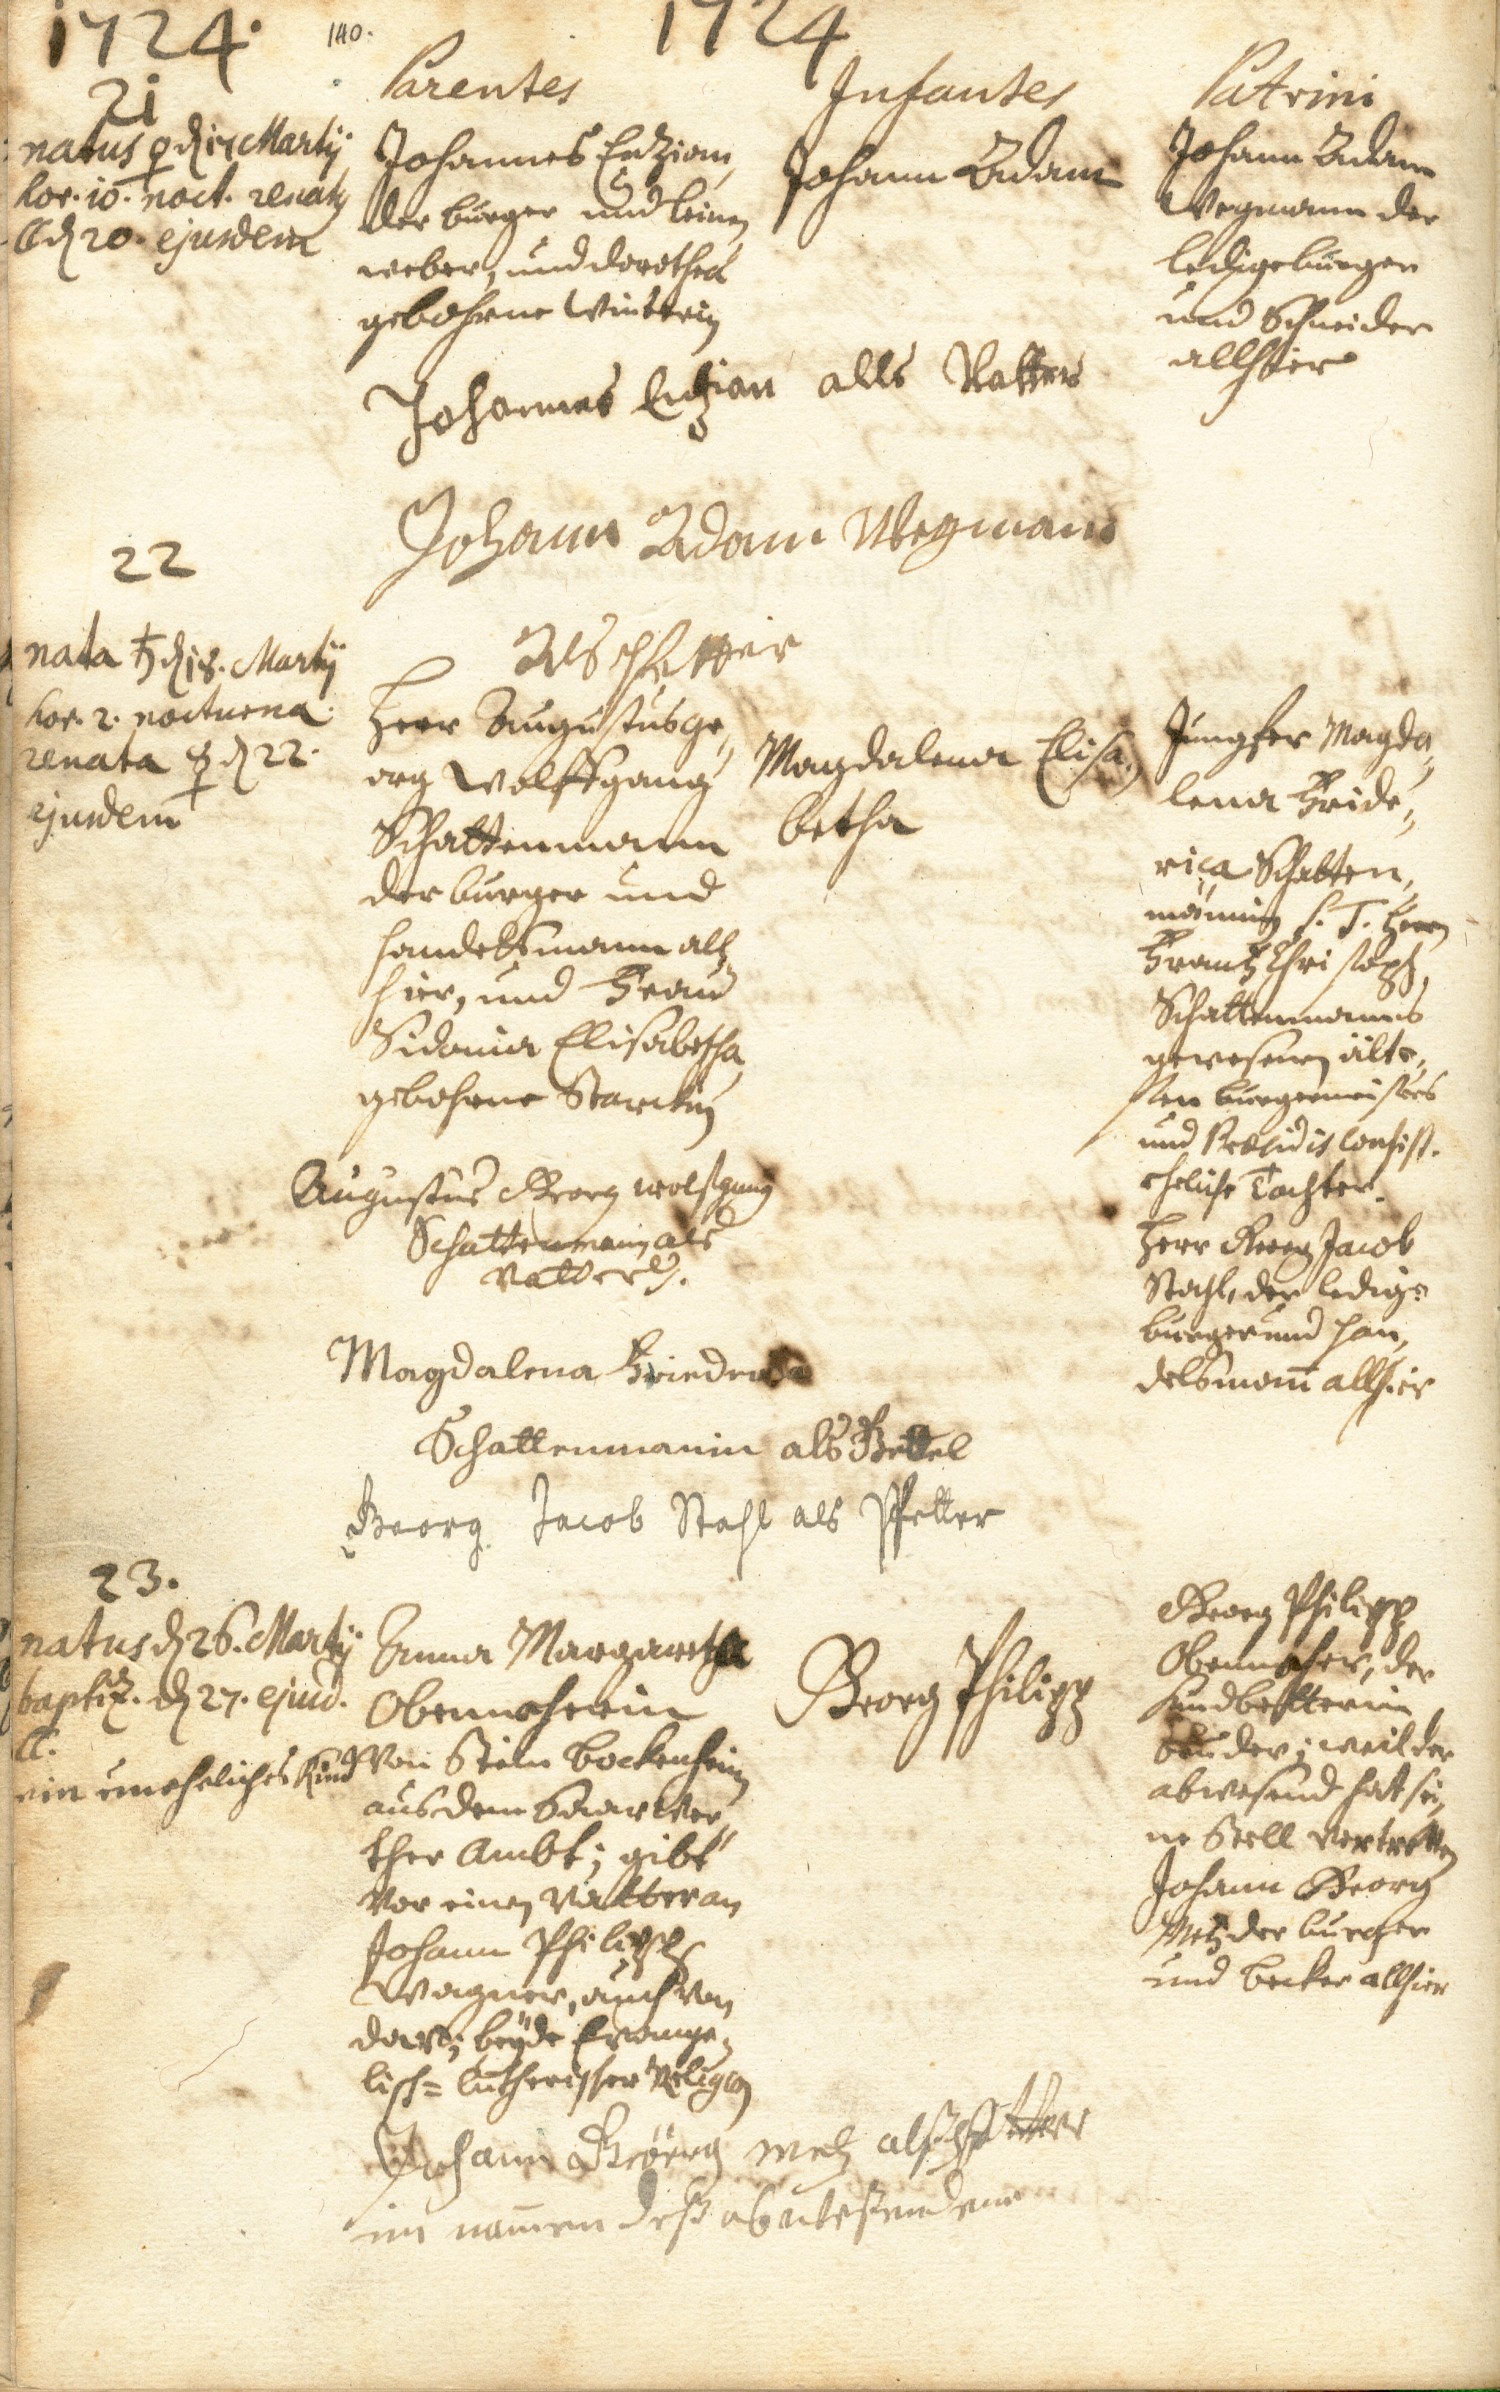 1724. 140. 1724
Parentes Infantes Patrini
21
natus ♀ d 17 Martij
hor. 10. noct. renat
d 20. ejusdem
Johannes Enzian,
der burger und leinen
weber, und dorothea
gebohrne
Johann Adam
Johann Adam
Wegmann der
ledige burger
und Schneider
allhier
Johannes Entzian alls Vatter
Johann Adam Wegmann
Als pfetter
22
nata ♄ d 18. Martij
hor. 2. nocturna
renata ☿ d 22.
ejusdem
Herr Augustus Ge„
org Wolffgang
Schattenmann
der burger und
handelsmann all„
hier, und Frau
Sidonia Elisabetha
gebohrne Starckin
Magdalena Elisa„
betha
Jungfer Magda„
lena Fride„
rica Schatten„
männin S. T. Herrn
Frantz Christoph
Schattenmanns
gewesenen älte„
sten burgermeisters
und Præsidis Consist.
eheliche Tochter.
Herr Georg Jacob
Stahl, der ledige
burger und han„
delsmann allhier
Augustus Georg wolfgang
Schattenmann als
vatter.
Magdalena Friederica
Schattenmänin als Gettel
Georg Jacob Stahl als Pfetter
23.
natus d 26. Martij
baptiz. d 27. ejusd.
ein uneheliches Kind
Anna Margaretha
Obenmeherin
von Stein bockenheim
aus dem Saarwer„
ther Ambt; gibt
vor einen Vatter an
Johann Philipp
Wagner, auch von
dar; beyde Evange„
lisch= lutherischer Religion
Georg Philipp
Georg Philipp
der
Kindbetterin
bruder; weil der
abwesend hat sei„
ne Stell vertretten
Johann Georg
Metz der burger
und becker allhier
Johann Geörg metz als pfetter
im namen deß abwesenden